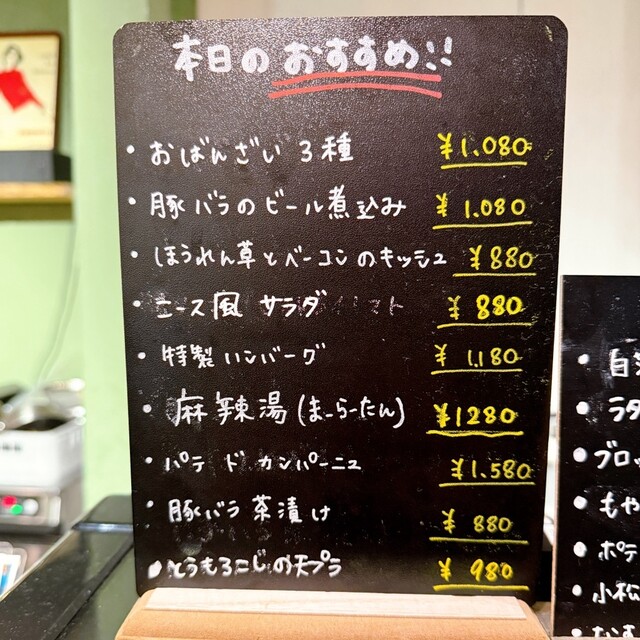 本日のおすすめ!!
・おばんざい 3種 ¥1.080
・豚バラのビール煮込み ¥1.080
・ほうれん草とベーコンのキッシュ ¥880
・ニース風 サラダ ¥880
・特製ハンバーグ ¥1,180
・麻辣湯(まーらーたん) ¥1280
・パテ ド カンパーニュ ¥1.580
・豚バラ 茶漬け ¥880
・とうもろこしの天プラ ¥980
・自
・ラタ
・ブロッ
・もや
・ポテ
・小松